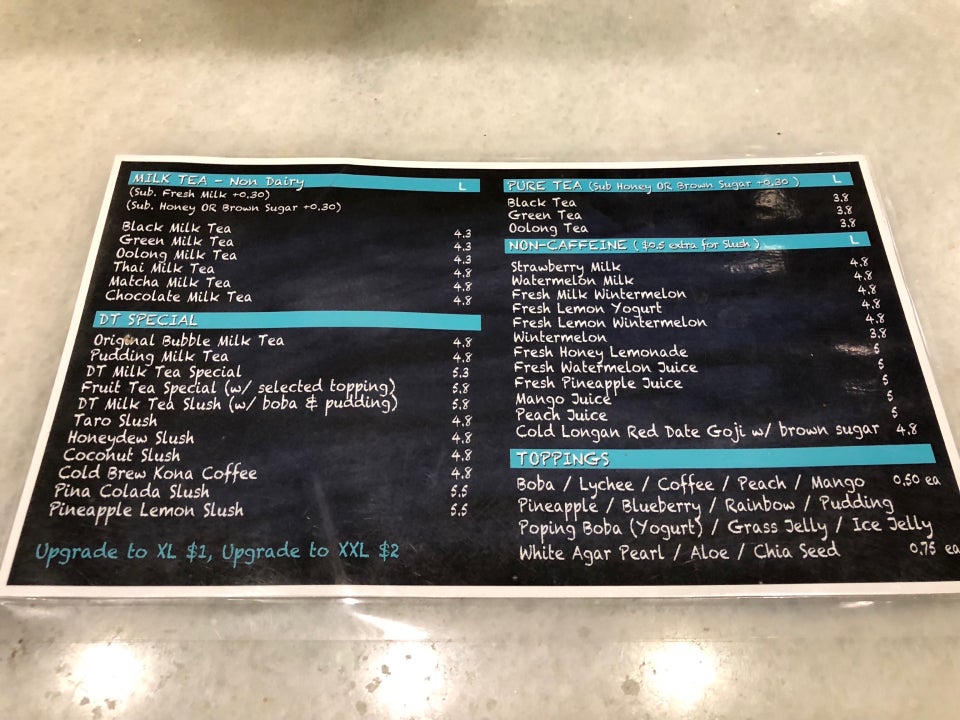 MILK TEA - Non Dairy L
(Sub. Fresh Milk +0.30)
(Sub. Honey OR Brown Sugar +0.30)
Black Milk Tea 4.3
Green Milk Tea 4.3
Oolong Milk Tea 4.3
Thai Milk Tea 4.8
Matcha Milk Tea 4.8
Chocolate Milk Tea 4.8
DT SPECIAL
Original Bubble Milk Tea 4.8
Pudding Milk Tea 4.8
DT Milk Tea Special 5.3
Fruit Tea Special (w/ selected topping) 5.8
DT Milk Tea Slush (w/ boba & pudding) 5.8
Taro Slush 4.8
Honeydew Slush 4.8
Coconut Slush 4.8
Cold Brew Kona Coffee 4.8
Pina Colada Slush 5.5
Pineapple Lemon Slush 5.5
Upgrade to XL $1, Upgrade to XXL $2
PURE TEA (Sub Honey OR Brown Sugar +0.30 ) L
Black Tea 3.8
Green Tea 3.8
Oolong Tea 3.8
NON-CAFFEINE ( $0.5 extra for Slush ) L
Strawberry Milk 4.8
Watermelon Milk 4.8
Fresh Milk Wintermelon 4.8
Fresh Lemon Yogurt 4.8
Fresh Lemon Wintermelon 4.8
Wintermelon 3.8
Fresh Honey Lemonade 5
Fresh Watermelon Juice 5
Fresh Pineapple Juice 5
Mango Juice 5
Peach Juice 5
Cold Longan Red Date Goji w/ brown sugar 4.8
TOPPINGS
Boba / Lychee / Coffee / Peach / Mango 0.50 ea
Pineapple / Blueberry / Rainbow / Pudding
Poping Boba (Yogurt) / Grass Jelly / Ice Jelly
White Agar Pearl / Aloe / Chia Seed 0.75 ea